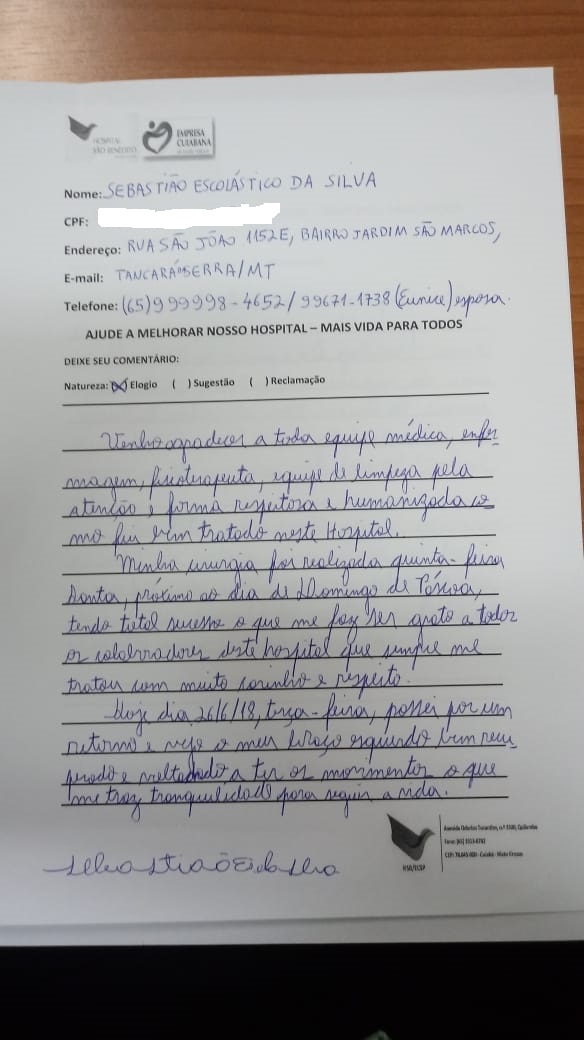 HOSPITAL
SÃO BENEDITO
EMPRESA
CUIABANA
Nome: SEBASTIÃO ESCOLÁSTICO DA SILVA
CPF:
Endereço: RUA SÃO JOÃO 1152E, BAIRRO JARDIM SÃO MARCOS,
E-mail: TANGARÁ DA SERRA/MT
Telefone: (65)999998-4652/99671-1738 (Eunice) esposa.
AJUDE A MELHORAR NOSSO HOSPITAL – MAIS VIDA PARA TODOS
DEIXE SEU COMENTÁRIO:
Natureza: (X) Elogio ( ) Sugestão ( ) Reclamação
Venho agradecer a toda equipe médica, enfer-
magem, fisioterapeuta, equipe de limpeza pela
atenção e forma respeitosa e humanizada co-
mo fui bem tratado neste Hospital.
Minha cirurgia foi realizada quinta-feira
Santa, próximo ao dia de Domingo de Páscoa,
tendo total sucesso o que me faz ser grato a todos
os colaboradores deste hospital que sempre me
tratou com muito carinho e respeito.
Hoje dia 26/6/18, terça-feira, passei por um
retorno e vejo o meu braço esquerdo bem recu
perado e voltando a ter os movimentos o que
me traz tranquilidade para seguir a vida.
HSB/ECSP
CEP: 78.045-000 - Cuiabá - Mato Grosso